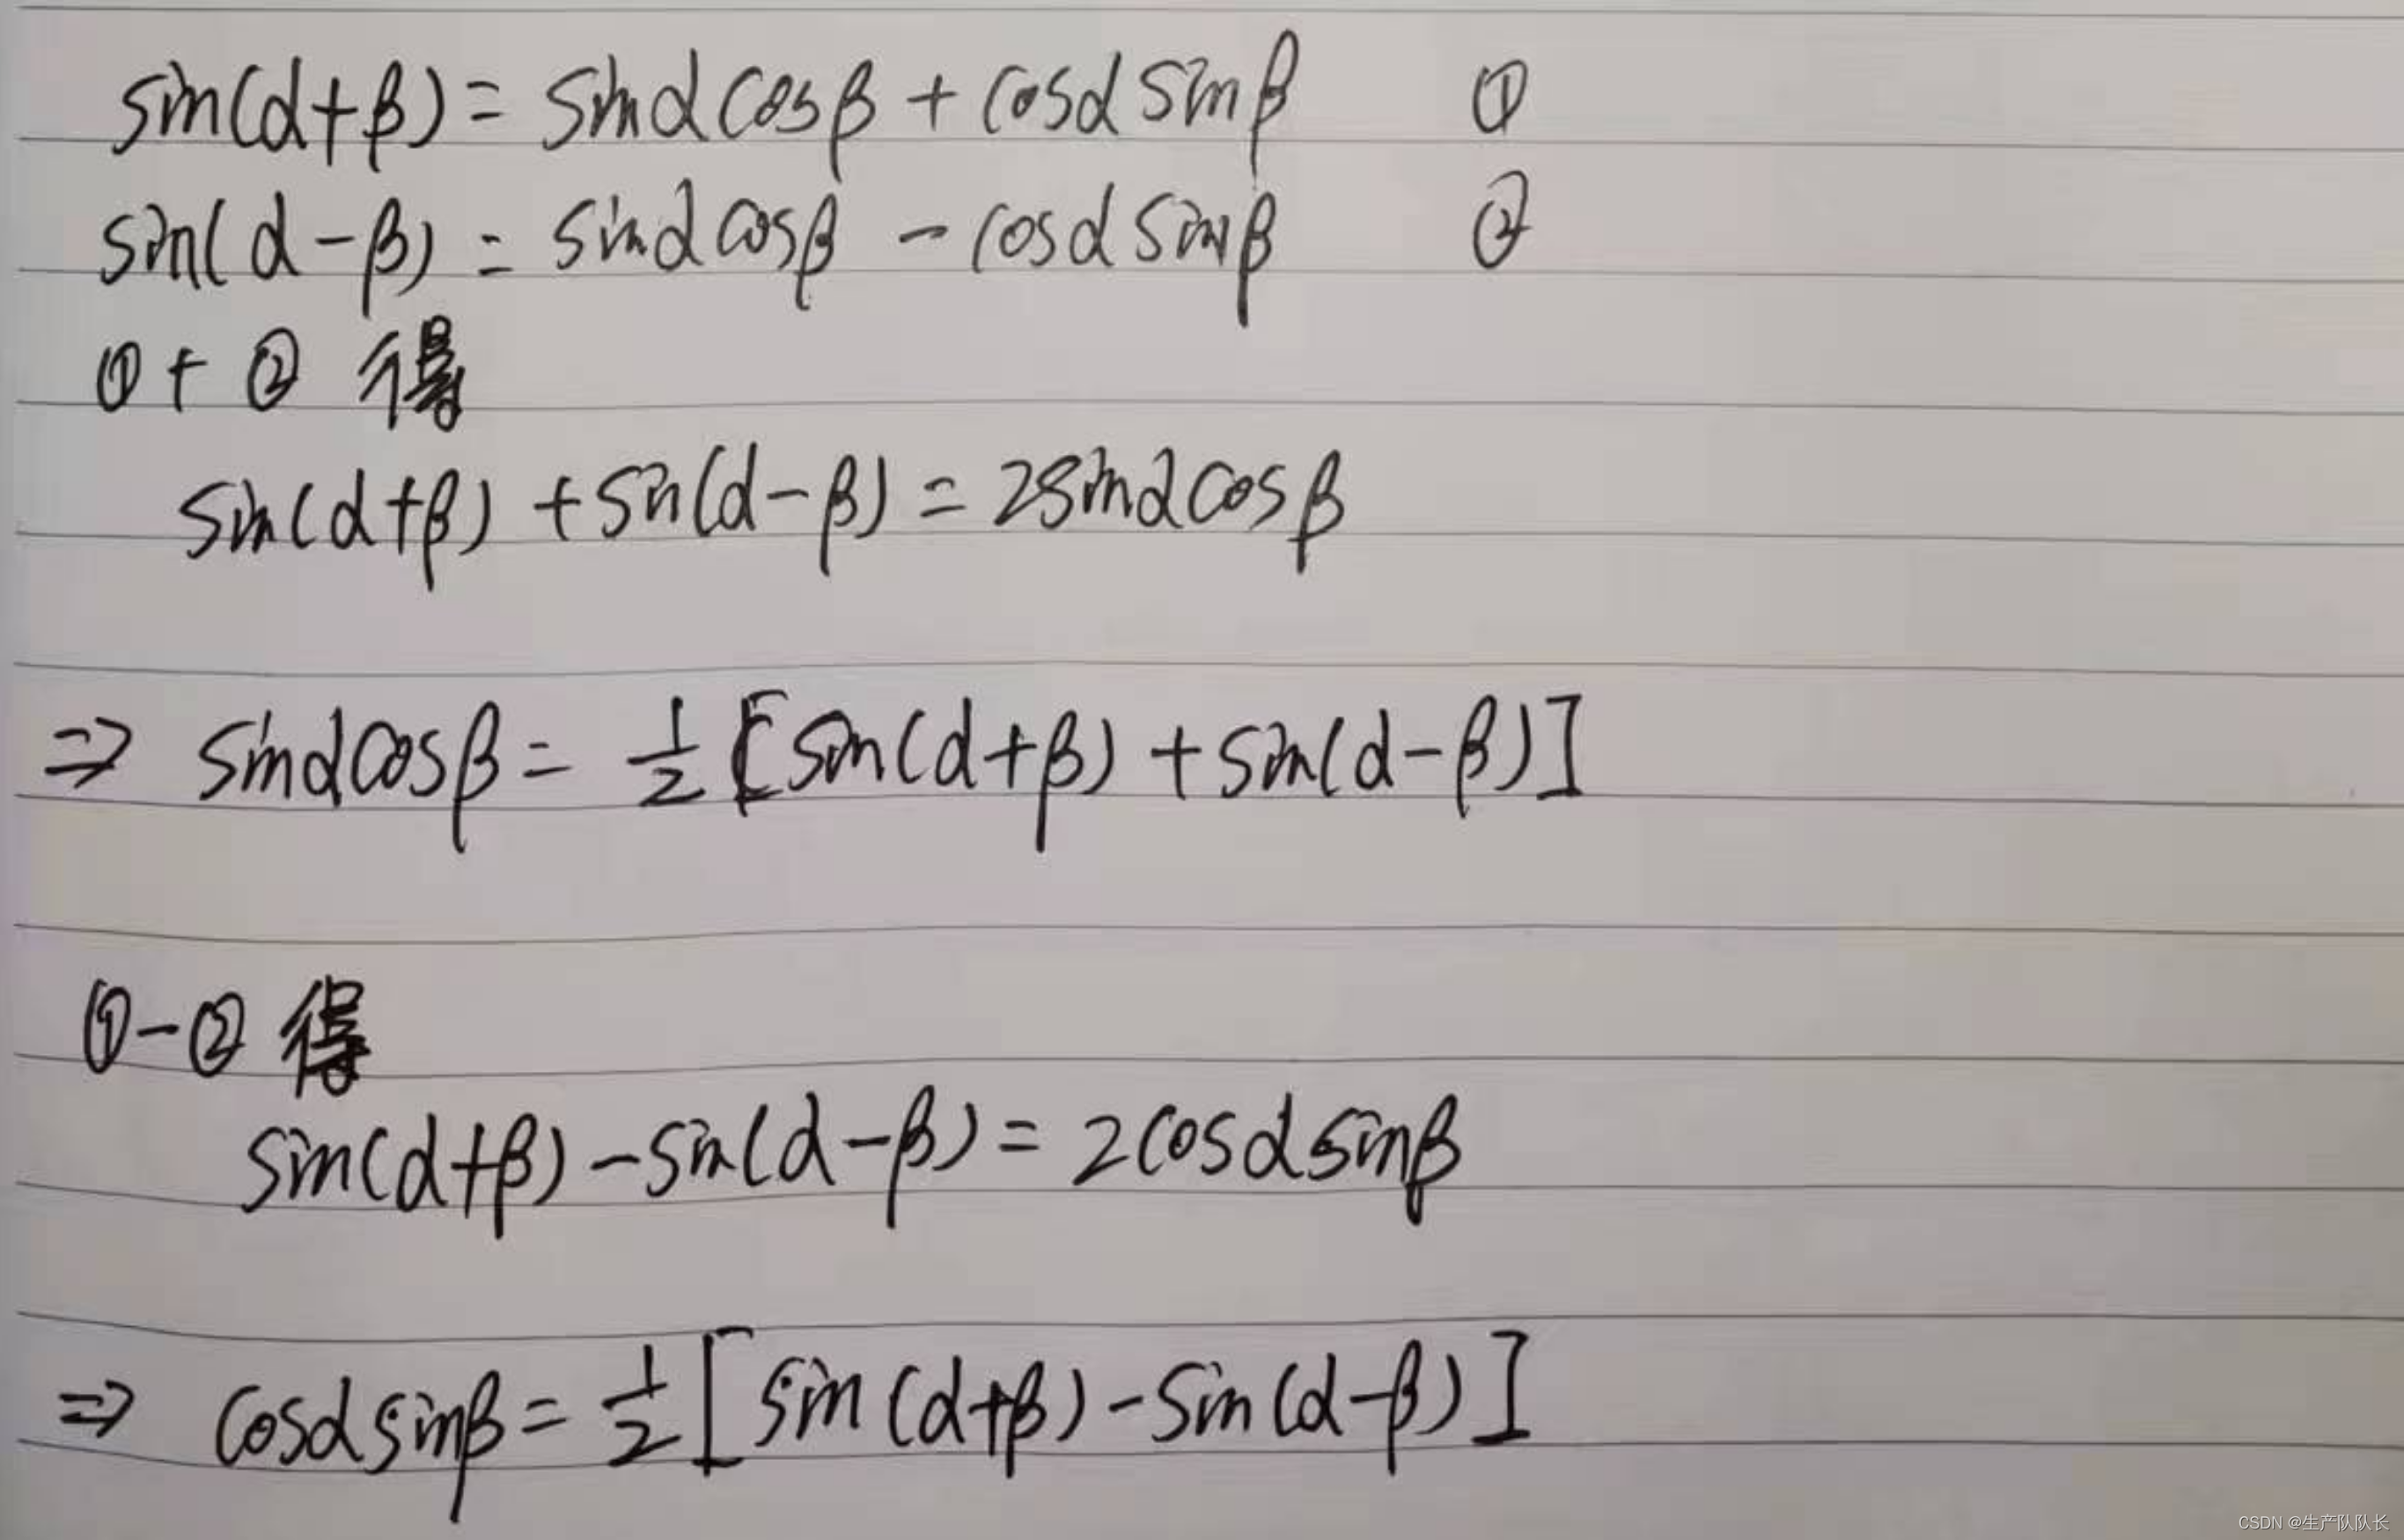 sin(α+β) = sinαcosβ + cosαsinβ ①
sin(α-β) = sinαcosβ - cosαsinβ ②
①+② 得
sin(α+β) + sin(α-β) = 2sinαcosβ
⇒ sinαcosβ = 1/2 [sin(α+β) + sin(α-β)]
①-② 得
sin(α+β) - sin(α-β) = 2cosαsinβ
⇒ cosαsinβ = 1/2 [sin(α+β) - sin(α-β)]
CSDN @生产队队长